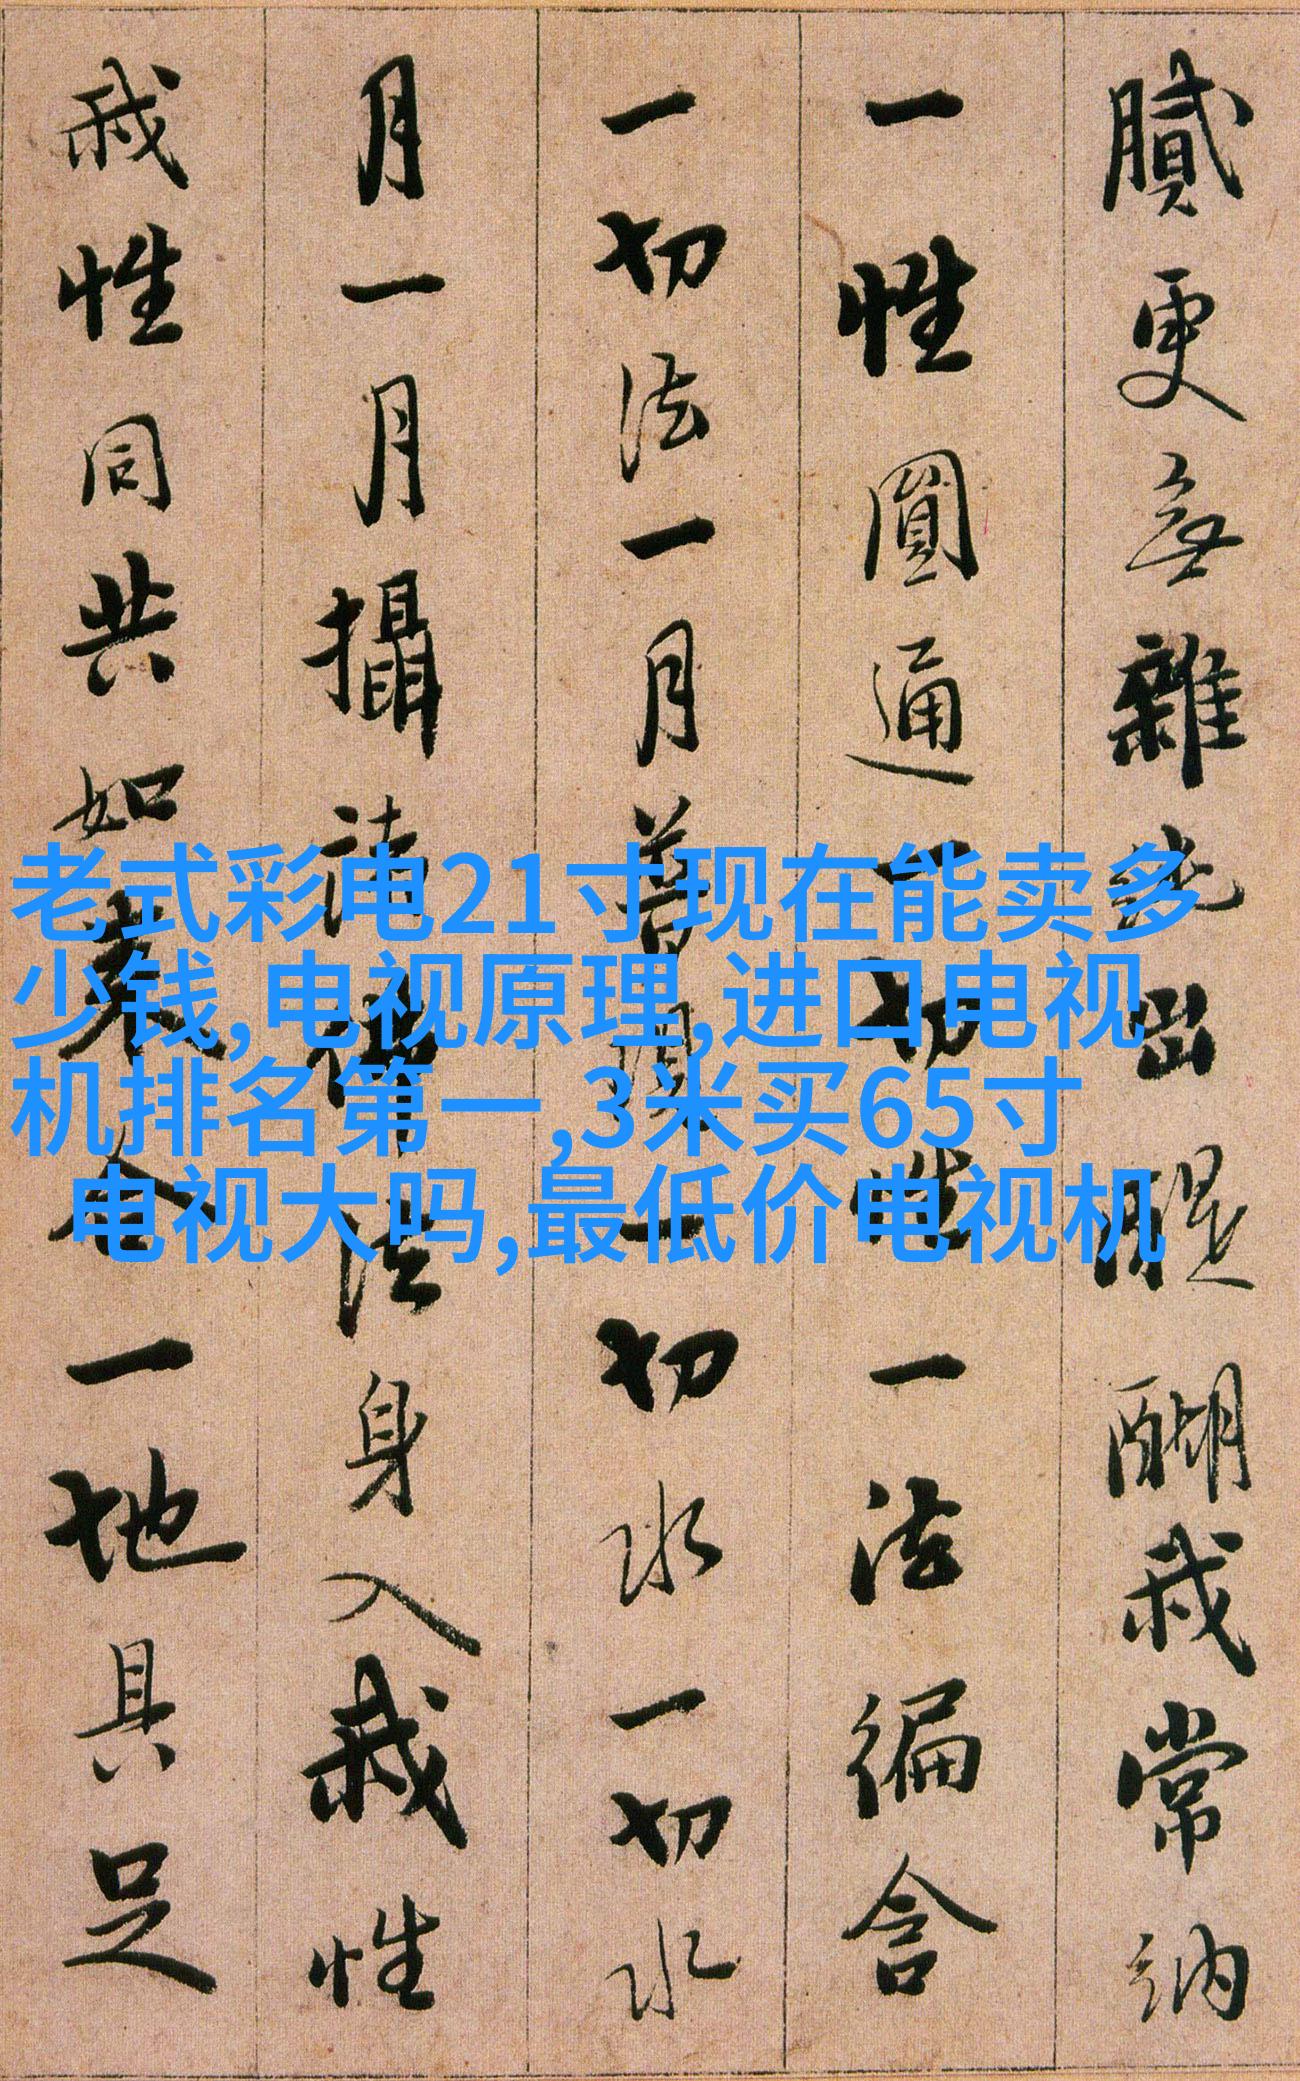 膩更無雜純出醍醐我常納
一性圓通一切性一法徧含
一切法一月普現一切水一切水
月一月攝諸佛法身入我性
我性同共如來合一地具足
老式彩电21寸现在能卖多
少钱,电视原理,进口电视
机排名第一,3米买65寸
电视大吗,最低价电视机